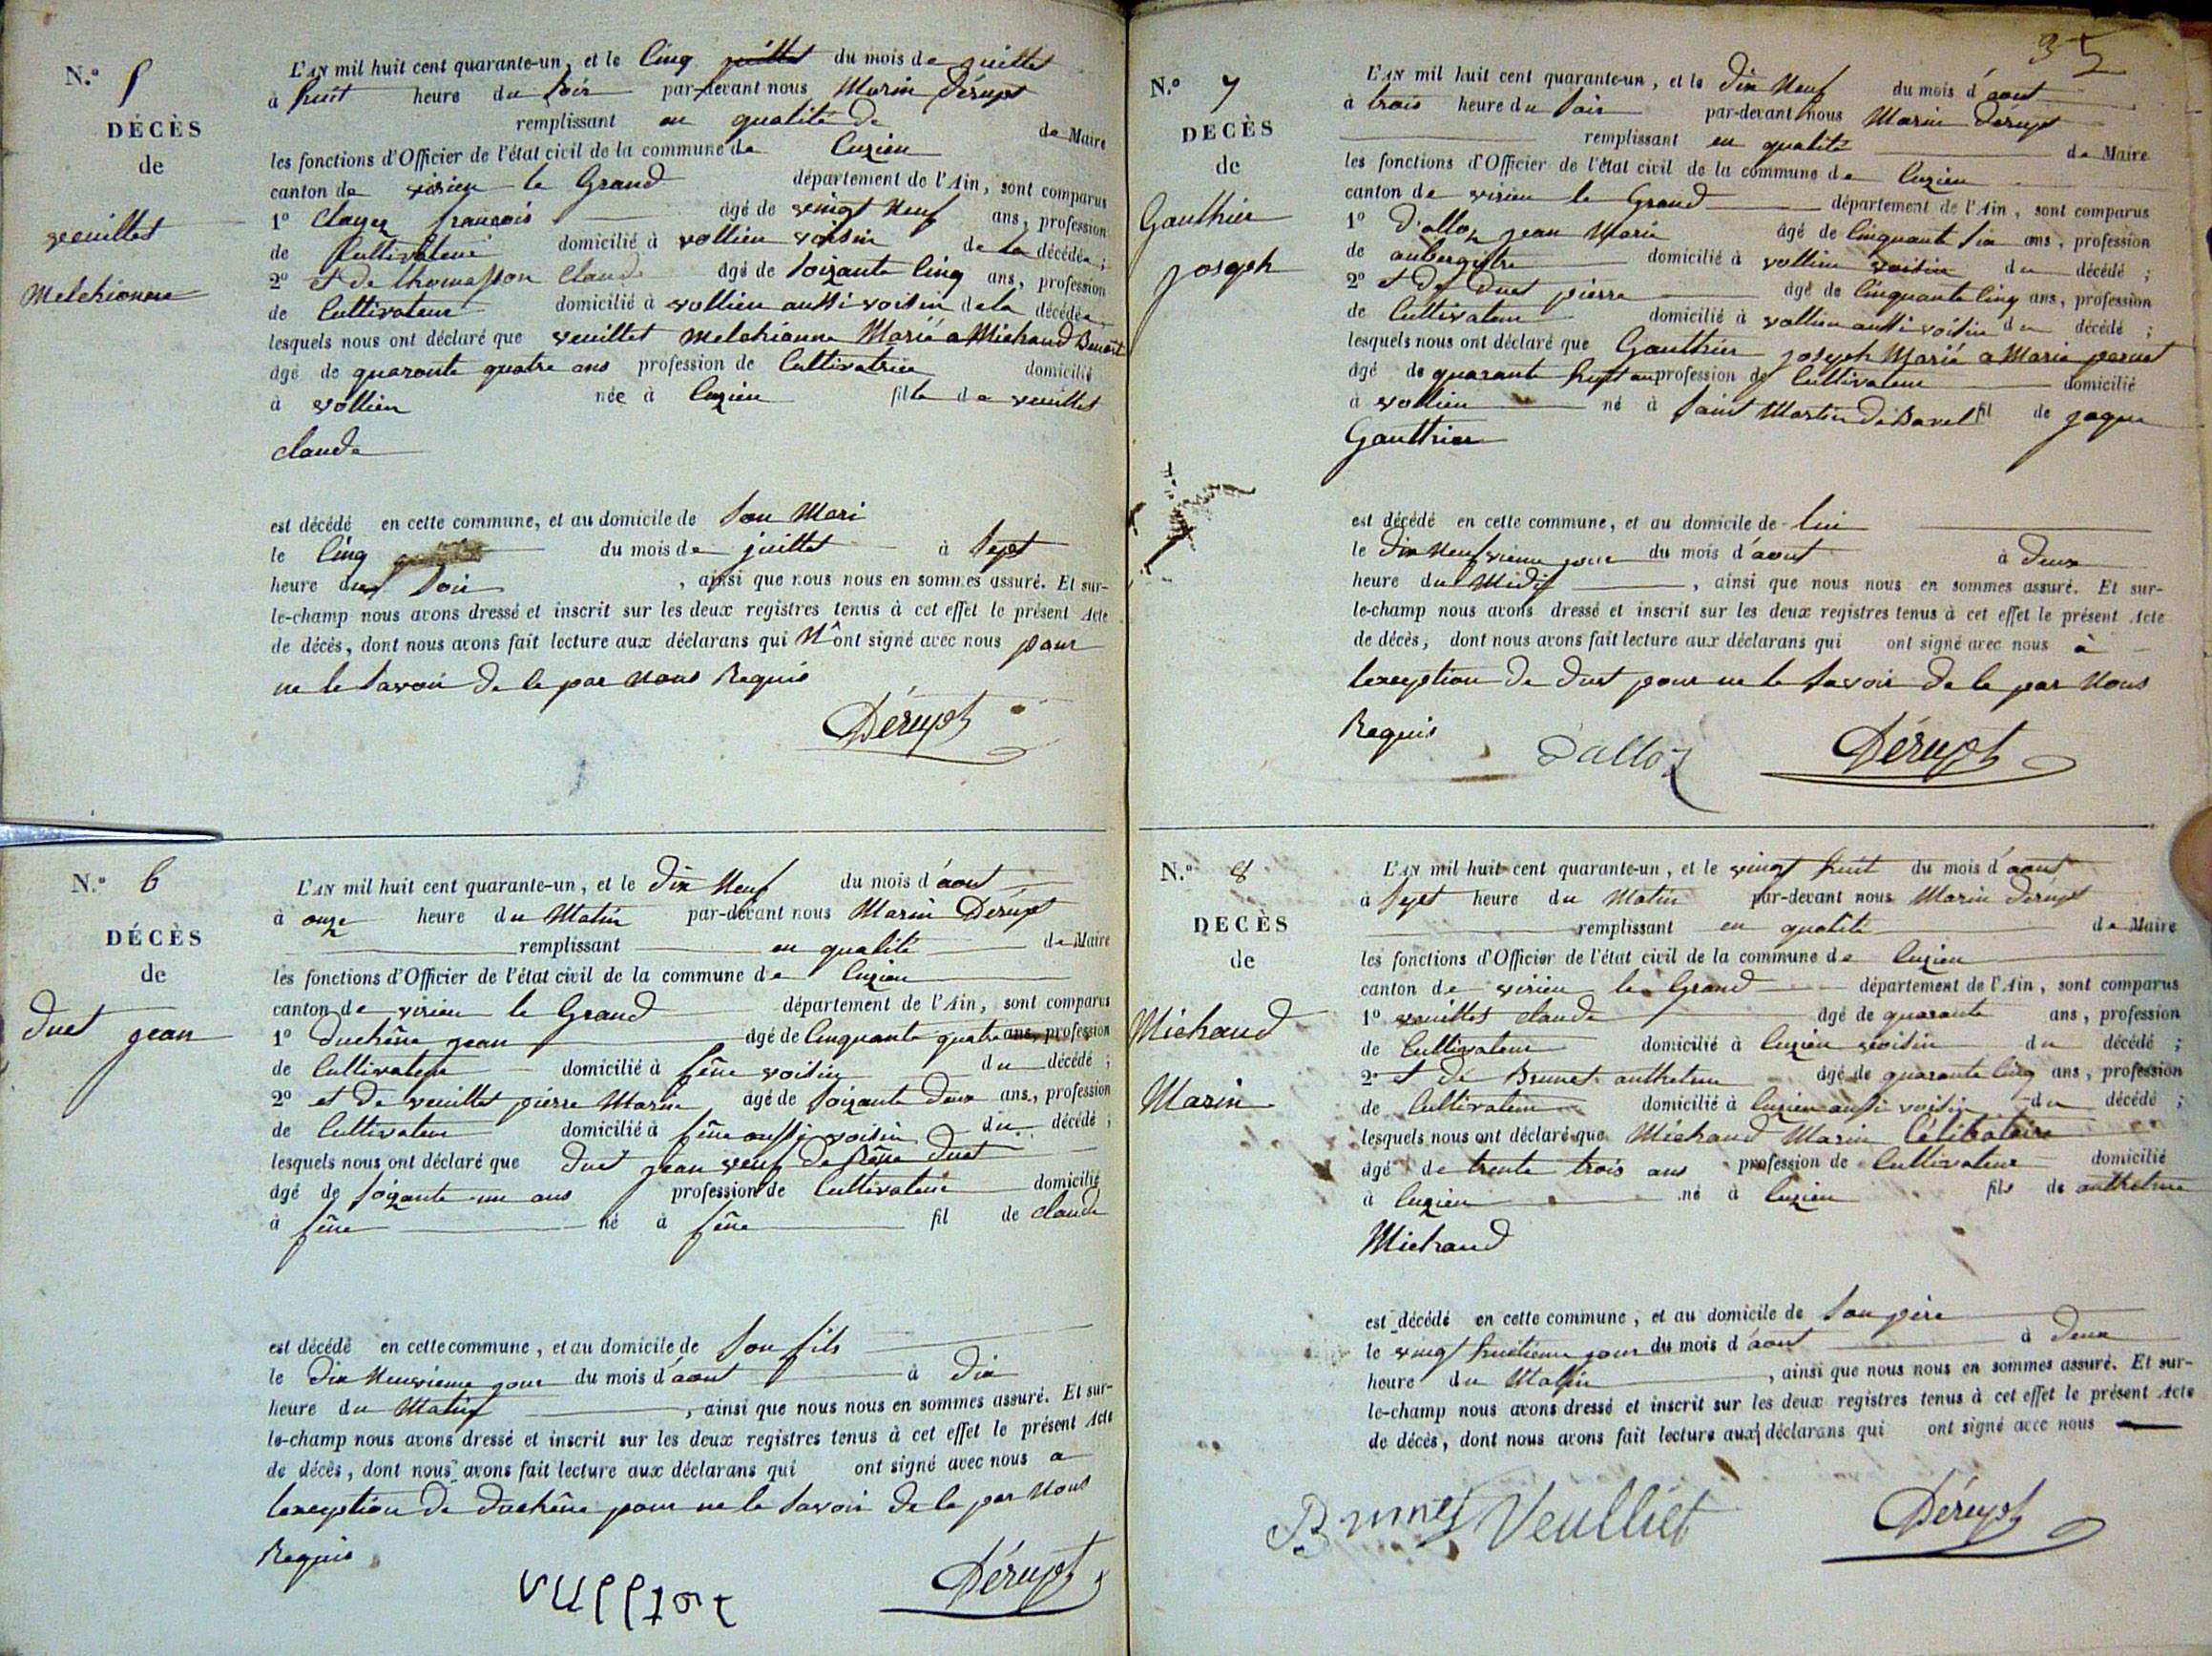 N.º 5
DÉCÈS
de
veuillet
Melchionne
L'AN mil huit cent quarante-un, et le Cinq du mois de juillet
à huit heure du Soir par-devant nous Marin Dérupt
remplissant en qualité de de Maire
les fonctions d'Officier de l'état civil de la commune de Cuzieu
canton de virieu le Grand département de l'Ain, sont comparus
1º Clayez françois âgé de vingt Neuf ans, profession
de Cultivateur domicilié à vollien voisin de la décédée ;
2º et de thomasson Claude âgé de Soizante Cinq ans, profession
de Cultivateur domicilié à vollien aussi voisin de la décédée
lesquels nous ont déclaré que veuillet Melchionne Marié a Michaud Benoit
âgé de quarante quatre ans profession de Cultivatrice domicilié
à vollien née à Cuzieu fille de veuillet
claude
est décédé en cette commune, et au domicile de Son Mari
le Cinq du mois de juillet à Sept
heure du Soir , ainsi que nous nous en sommes assuré. Et sur-
le-champ nous avons dressé et inscrit sur les deux registres tenus à cet effet le présent Acte
de décès, dont nous avons fait lecture aux déclarans qui N'ont signé avec nous pour
ne le Savoir de le par Nous Requis
Dérupt
N.º 6
DÉCÈS
de
duet jean
L'AN mil huit cent quarante-un, et le Dix Neuf du mois d'aout
à onze heure du Matin par-devant nous Marin Dérupt
remplissant en qualité de Maire
les fonctions d'Officier de l'état civil de la commune de Cuzieu
canton de virieu le Grand département de l'Ain, sont comparus
1º duchêne jean âgé de Cinquante quatre ans, profession
de Cultivateur domicilié à fêne voisin du décédé ;
2º et de veuillet pierre Marin âgé de Soizante deux ans, profession
de Cultivateur domicilié à fêne aussi voisin du décédé ;
lesquels nous ont déclaré que duet jean veuf de duet
âgé de Soizante un ans profession de Cultivateur domicilié
à fêne né à fêne fil de claude
est décédé en cette commune, et au domicile de Son fils
le Dix Neuvieme jour du mois d'aout à Dix
heure du Matin , ainsi que nous nous en sommes assuré. Et sur-
le-champ nous avons dressé et inscrit sur les deux registres tenus à cet effet le présent Acte
de décès, dont nous avons fait lecture aux déclarans qui ont signé avec nous a
lexception de duchêne pour ne le Savoir de le par Nous
Requis
Dérupt
35
N.º 7
DECÈS
de
Gauthier
joseph
L'AN mil huit cent quarante-un, et le Dix Neuf du mois d'aout
à trois heure du Soir par-devant nous Marin Dérupt
remplissant en qualité de Maire
les fonctions d'Officier de l'état civil de la commune de Cuzieu
canton de virieu le Grand département de l'Ain, sont comparus
1º D'alloz jean Marie âgé de Cinquante Six ans, profession
de aubergiste domicilié à vollien voisin du décédé ;
2º et de Duet pierre âgé de Cinquante Cinq ans, profession
de Cultivateur domicilié à vollien aussi voisin du décédé ;
lesquels nous ont déclaré que Gauthier joseph Marié a Marie pernet
âgé de quarante huit an profession de Cultivateur domicilié
à vollien né à Saint Martin de Bavel fil de jaque
Gauthier
est décédé en cette commune, et au domicile de lui
le Dix Neufvieme jour du mois d'aout à Deux
heure du Midi , ainsi que nous nous en sommes assuré. Et sur-
le-champ nous avons dressé et inscrit sur les deux registres tenus à cet effet le présent Acte
de décès, dont nous avons fait lecture aux déclarans qui ont signé avec nous à
lexception de Duet pour ne le Savoir de le par Nous
Requis
Dalloz Dérupt
N.º 8
DECÈS
de
Michaud
Marin
L'AN mil huit cent quarante-un, et le vingt huit du mois d'aout
à Sept heure du Matin par-devant nous Marin Dérupt
remplissant en qualité de Maire
les fonctions d'Officier de l'état civil de la commune de Cuzieu
canton de virieu le Grand département de l'Ain, sont comparus
1º veuillet claude âgé de quarante ans, profession
de Cultivateur domicilié à Cuzieu voisin du décédé ;
2º et de Brunet anthelme âgé de quarante Cinq ans, profession
de Cultivateur domicilié à Cuzieu aussi voisin du décédé ;
lesquels nous ont déclaré que Michaud Marin Célibataire
âgé de trente trois ans profession de Cultivateur domicilié
à Cuzieu né à Cuzieu fils de anthelme
Michaud
est décédé en cette commune, et au domicile de Son père
le vingt huitieme jour du mois d'aout à Deux
heure du Matin , ainsi que nous nous en sommes assuré. Et sur-
le-champ nous avons dressé et inscrit sur les deux registres tenus à cet effet le présent Acte
de décès, dont nous avons fait lecture aux déclarans qui ont signé avec nous
Brunet Veulliet Dérupt